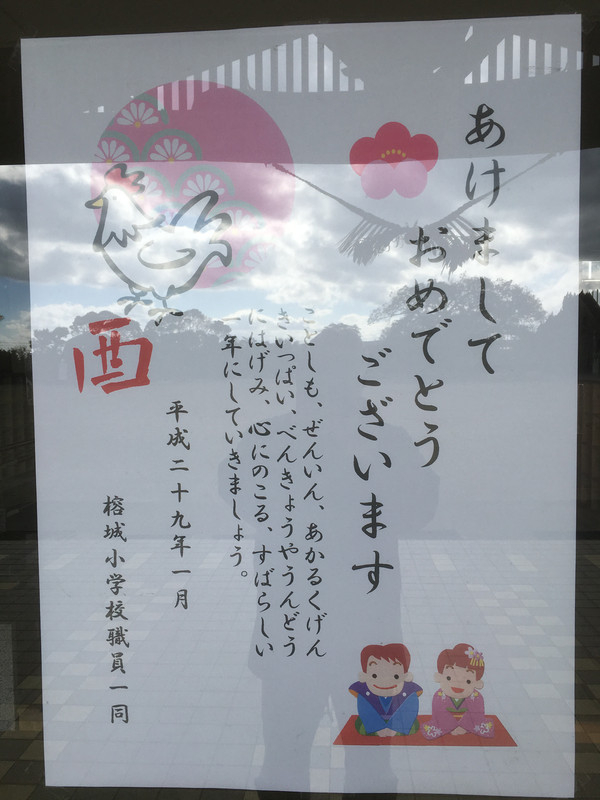 あけまして
おめでとう
ございます
ことしも、ぜんいん、あかるくげん
きいっぱい、べんきょうやうんどう
にはげみ、心にのこる、すばらしい
一年にしていきましょう。
平成二十九年一月
榕城小学校職員一同
酉